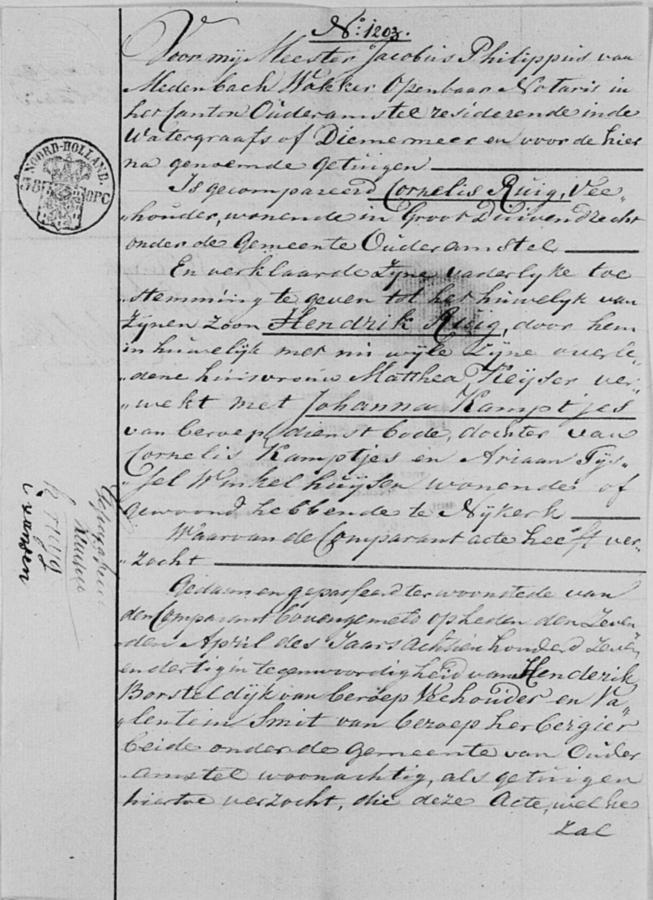 No: 1203.
Voor mij Meester Jacobus Philippus van
Medenbach Wakker Openbaar Notaris in
het Canton Ouderamstel resideerende in de
Watergraafs of Diemermeer en voor de hier
na genoemde getuigen
Is gecompareerd Cornelis Ruig, Vee„
„houder, wonende in Groot Duivendrecht
onder de Gemeente Ouderamstel
En verklaarde Zyne vaderlyke toe
„stemming te geven tot het huwelyk van
Zynen Zoon Hendrik Ruig, door hem
in huwelyk met nu wyle Zyne overle„
„dene huisvrouw Matthea Keyser ver„
„wekt met Johanna Kamptjes
van beroep dienstbode, dochter van
Cornelis Kamptjes en Ariaan Tys„
„sel Winkelhuysen wonende of
gewoond hebbende te Nykerk
Waarvan de Comparant acte heeft ver„
„zocht
Gedaan en gepasseerd ter woonstede van
den Comparant bovengemeld op heden den Zeven
den April des Jaars Achtien honderd Zeven
en dertig in tegenwoordigheid van Henderik
Borsteldyk van beroep Veehouder en Va„
„lentein Smit van beroep herbergier
beide onder de Gemeente van Ouder
„amstel woonachtig, als getuigen
hiertoe verzocht, die deze Acte, welke
zal
NOORD-HOLLAND.
OPC